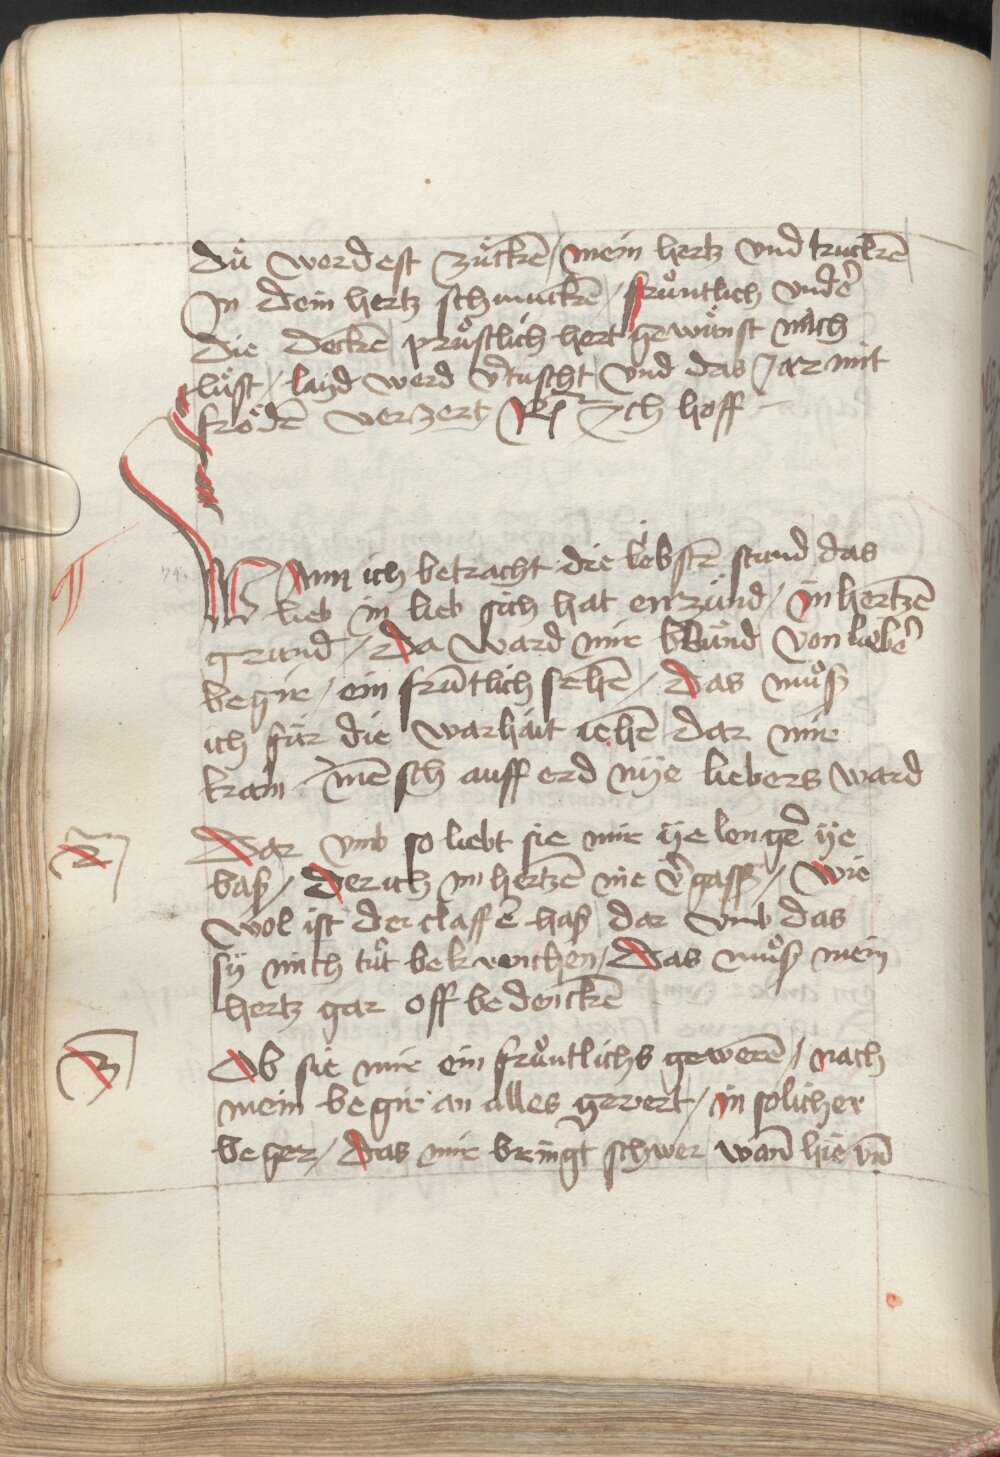 Dü werdest zücken / mein hertz vnd trucken
In dein hertz schmucken / früntlich vnder
die decken prüstlich hert gewünst mich
glust / layd werd vertuscht vnd das Jar mit
fröden verzert R Ich hoff
Wann ich betracht die löbsten stund das
lieb in lieb sich hat enzünd / in hertzen
grund / Da ward mir kund von lieber
begir / ein früntlich sehen / Das muoß
ich für die warhait iehen dar mir
kain mensch auff erd nye liebers ward
2 Dar vmb so liebt sie mir ye lenger ye
baß / Der ich im hertzen nie vergass / Wie
wol ist der claffer haß dar vmb das
sy mich tuot bekrencken / Das muoß mein
hertz gar off bedencken
3 Ob sie mir ein früntlichs geweren / nach
mein begir an alles gevert / in solicher
beger / Das mir bringt schwer wann hie vnd